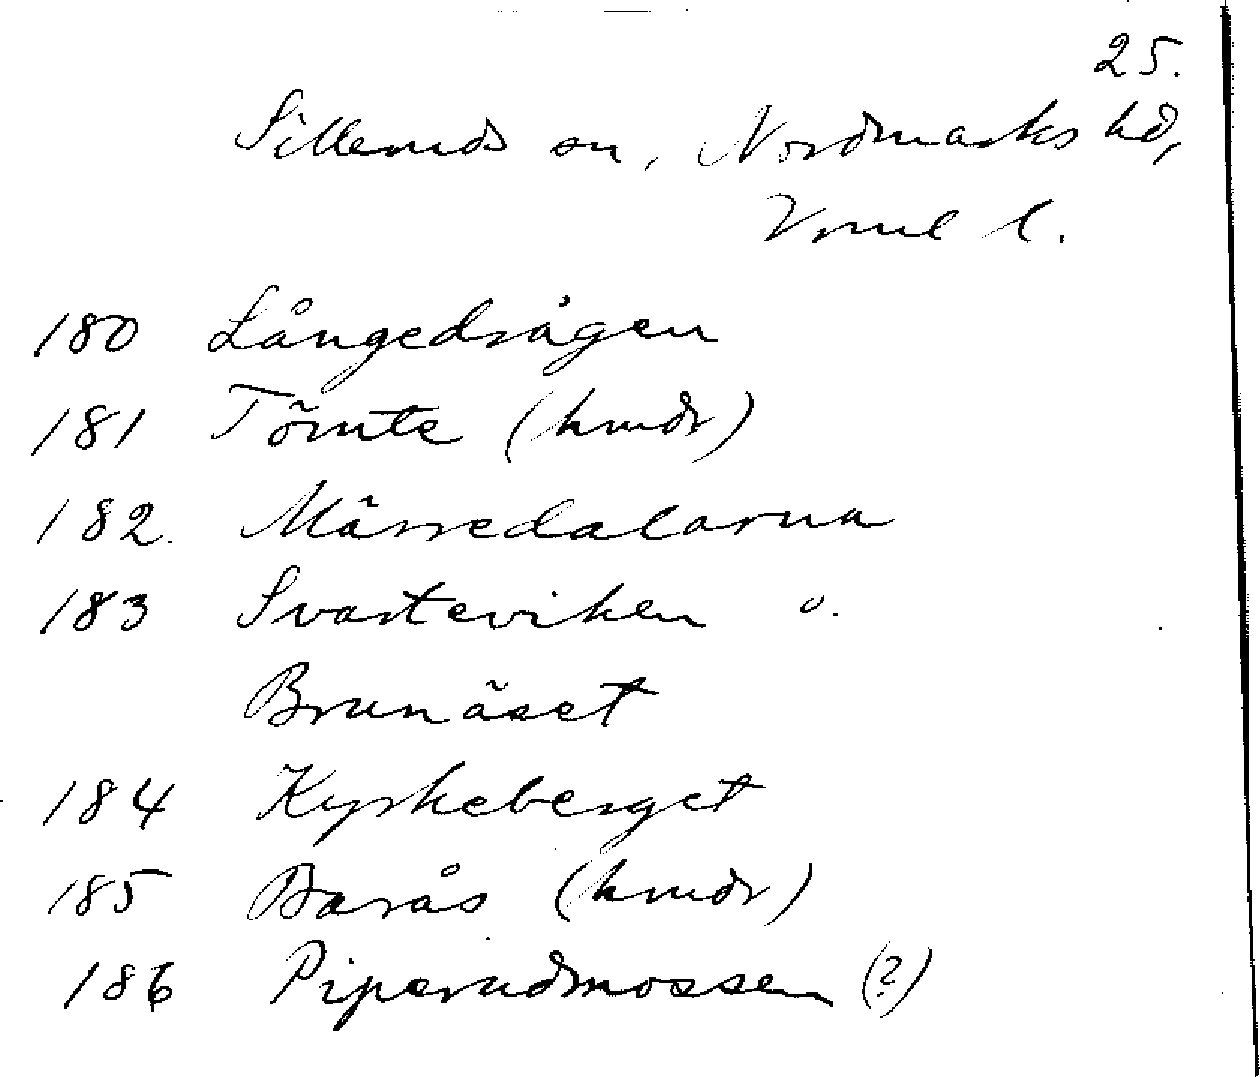 25.
Silleruds sn, Nordmarks hd,
Vrml l.
180 Långedrågen
181 Tömte (hmdr)
182. Märredalarna
183 Svarteviken o.
Brunäset
184 Kyrkeberget
185 Barås (hmdr)
186 Piperudmossen (?)